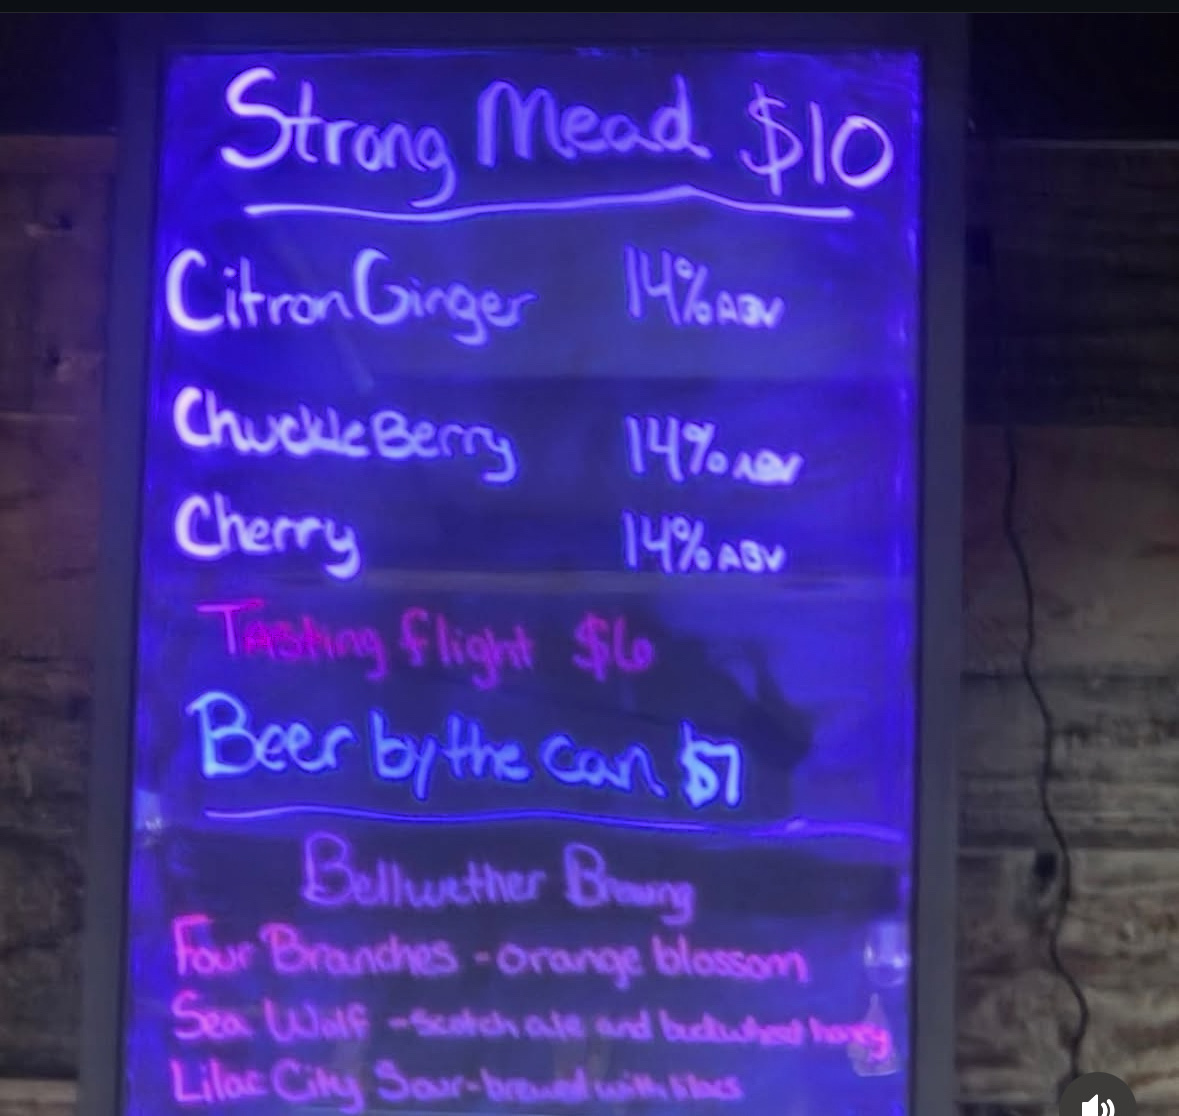 Strong Mead $10
Citron Ginger 14% ABV
ChuckleBerry 14% ABV
Cherry 14% ABV
Tasting flight $6
Beer by the can $7
Bellwether Brewing
Four Branches - orange blossom
Sea Wolf - Scotch ale and buckwheat honey
Lilac City Sour - brewed with lilacs